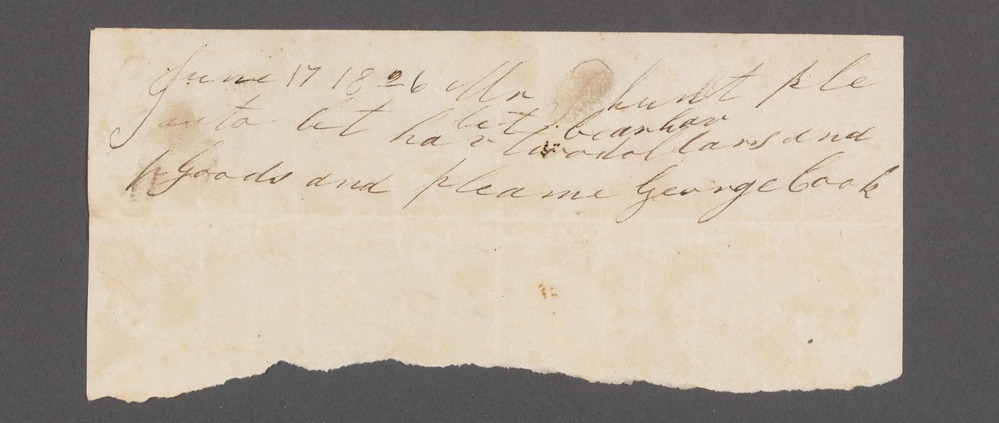 June 17 1826 Mr hunt ple
to let let bearhav
hav two dollars and
goods and plea me George Cook